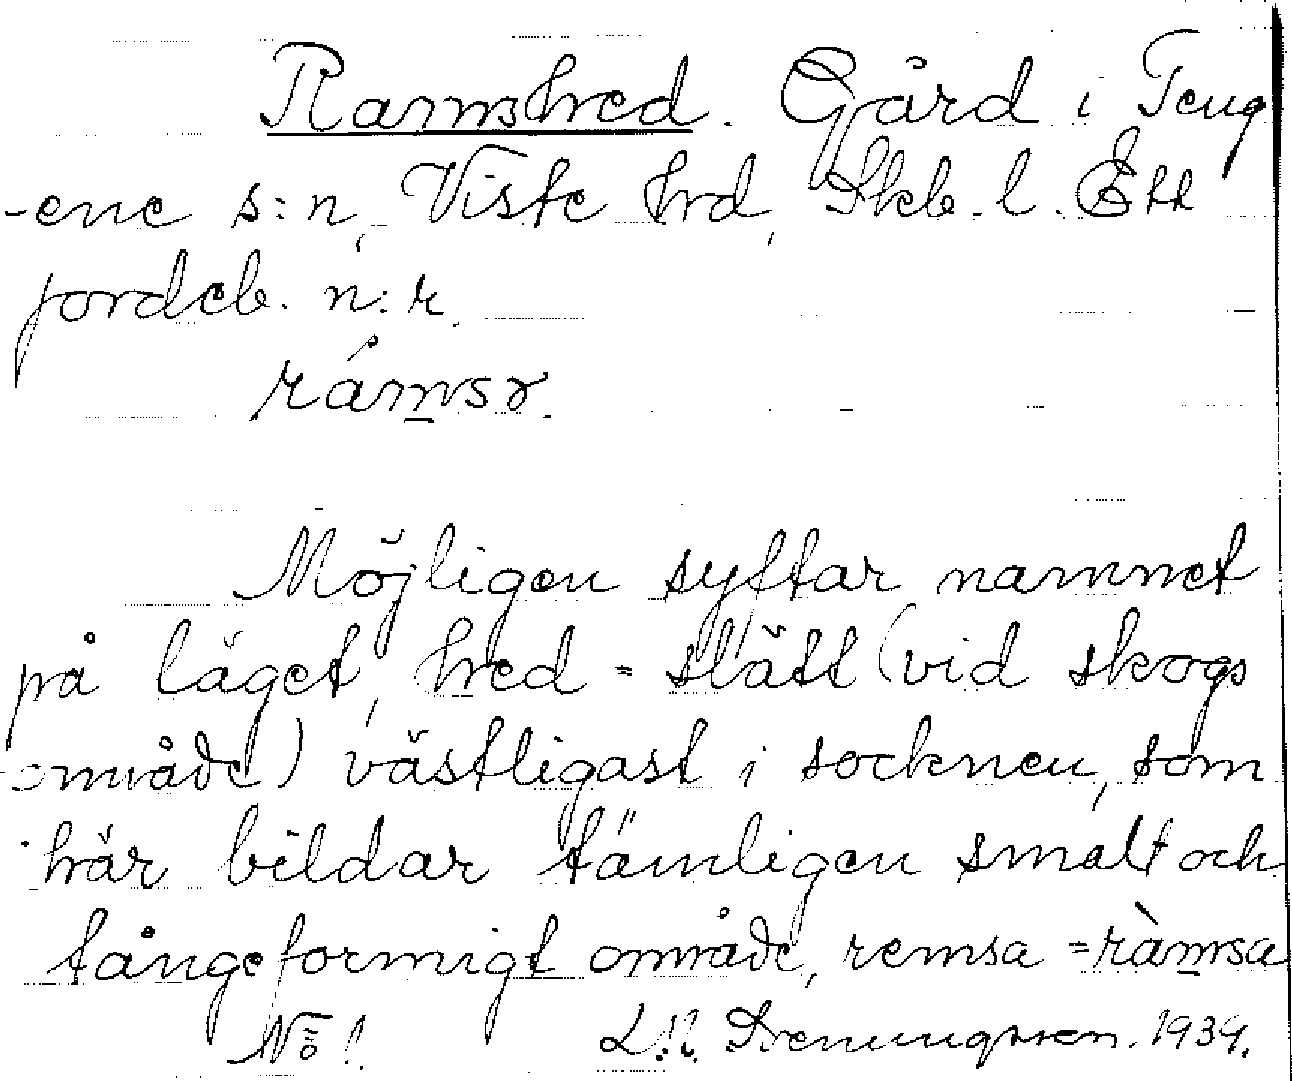 Ramshed. Gård i Teng
-ene s:n, Viste hrd, Skb. l. Ett
jordeb. n:r.
rámsə.
Möjligen syftar namnet
på läget, hed = slätt (vid skogs
-område) västligast i socknen, som
här bildar tämligen smalt och
tångeformigt område, remsa = ràmsa
No !
1939.